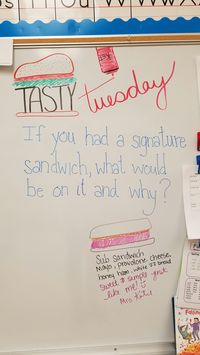 TASTY Tuesday
If you had a signature
sandwich, what would
be on it and why?
Sub sandwich
Mayo, provolone cheese,
honey ham, white
bread
Sweet & simple just
like me!
Mrs.